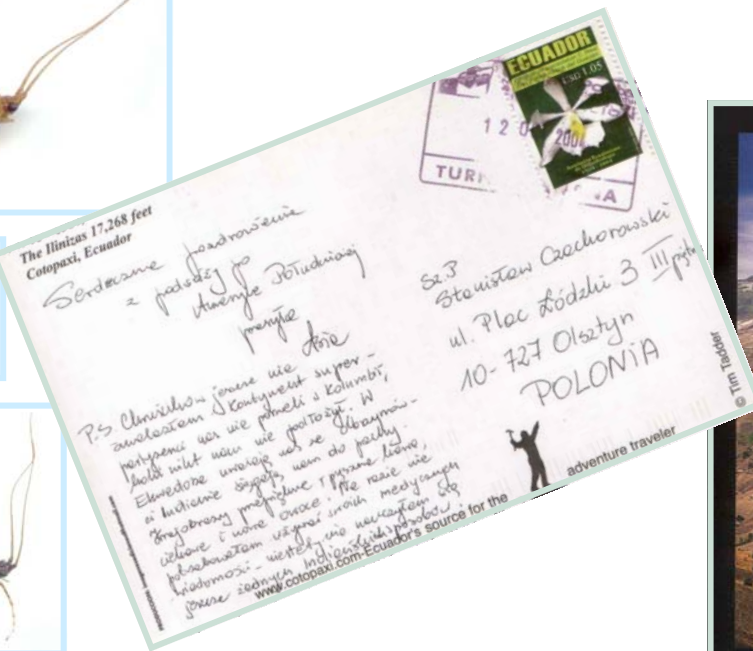 The Ilinizas 17,268 feet
Cotopaxi, Ecuador
Serdeczne pozdrowienia
z podróży po
Ameryce Południowej
przesyła
Ania
P.S. Chruścików jeszcze nie
znalazłam. Kontynent super -
partyzanci nas nie porwali w Kolumbii,
nikt nam nie podłożył. W
Ekwadorze uważają nas za Olbrzymów -
Indianie sięgają nam do pachy.
przepiękne i pyszne
i nowe owoce. Na razie nie
potrzebowałam używać swoich medycznych
wiadomości - niestety nie nauczyłam się
jeszcze żadnych Indiańskich sposobów.
ECUADOR
USD 1.05
12 0
200
TURI
NA
Sz.P
Stanisław Czachorowski
ul. Plac Łódzki 3 III piętro
10-727 Olsztyn
POLONIA
© Tim Tadder
www.cotopaxi.com-Ecuador's source for the adventure traveler